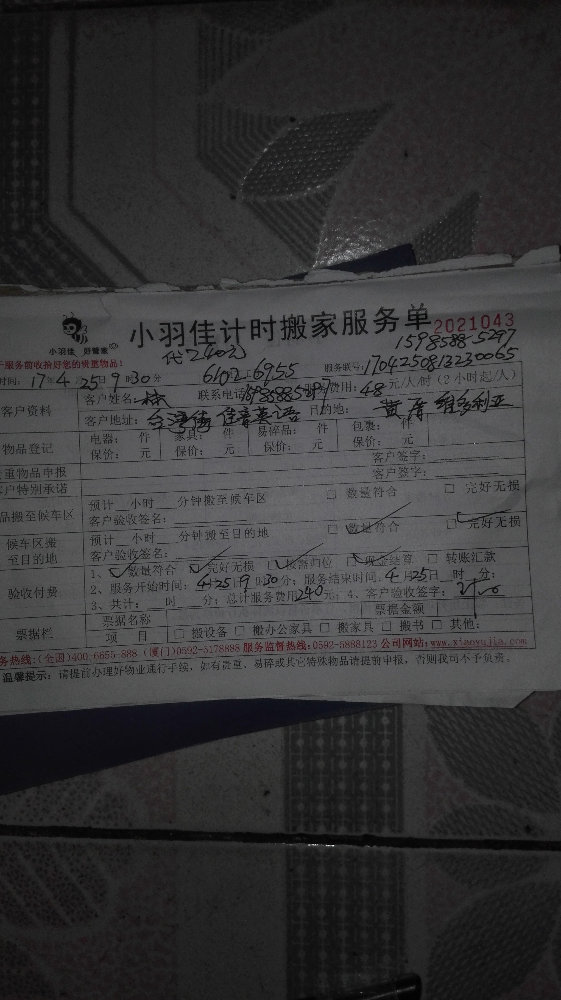 小羽佳 好管家
小羽佳计时搬家服务单 2021043
15985885297
代240元
服务前收拾好您的贵重物品!
6102 6955 服务联号: 17042508132230065
时间: 17年4月25日9时30分
客户资料 客户姓名: 联系电话 15985885297 费用: 48元/人/时 (2小时起/人)
客户地址: 台湾街 佳音英语 目的地: 黄厝 维多利亚
物品登记 电器: 件 家具: 件 易碎品: 件 包裹: 件
保价: 元 保价: 元 保价: 元 保价: 元
重物品申报 客户签字:
户特别承诺 客户签字:
品搬至候车区 预计__小时__分钟搬至候车区 □ 数量符合 □ 完好无损
客户验收签名:
候车区搬至目的地 预计__小时__分钟搬至目的地 □ 数量符合 □ 完好无损
客户验收签名:
验收付费 1、□ 数量符合 □ 完好无损 □ 按需归位 □ 现金结算 □ 转账汇款
2、服务开始时间: 4月25日9时30分; 服务结束时间: 4月25日__时__分;
3、共计: __时__分; 总计服务费用240元; 4、客户验收签字:
票据栏 票据名称 票据金额
项 目 □ 搬设备 □ 搬办公家具 □ 搬家具 □ 搬书 □ 其他:
务热线:(全国)400-6655-888 (厦门)0592-5178888 服务监督热线:0592-5888123 公司网站: www.xiaoyujia.com
温馨提示: 请提前办理好物业通行手续, 如有贵重、易碎或其它特殊物品请提前申报, 否则我司不予负责。